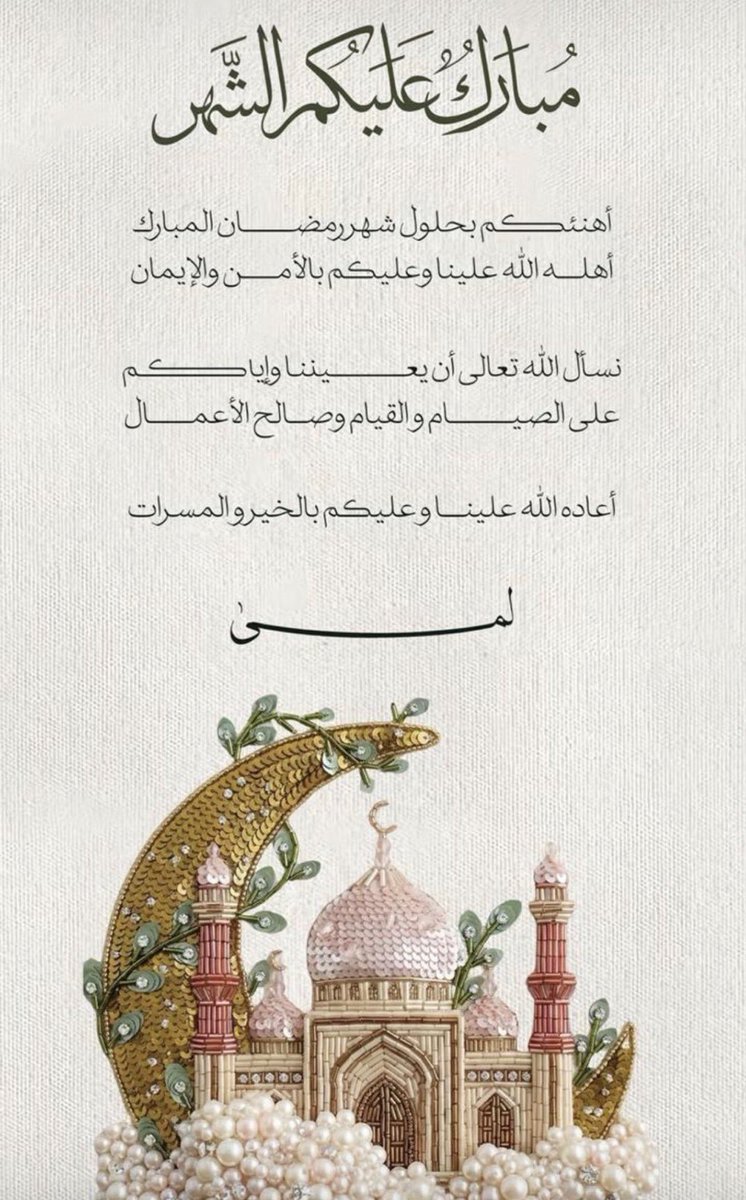 مُبَارَكٌ عَلَيْكُم الشَّهر
أهنئكم بحلول شهر رمضان المبارك
أهله الله علينا وعليكم بالأمن والإيمان
نسأل الله تعالى أن يعيننا وإياكم
على الصيام والقيام وصالح الأعمال
أعاده الله علينا وعليكم بالخير والمسرات
لمى